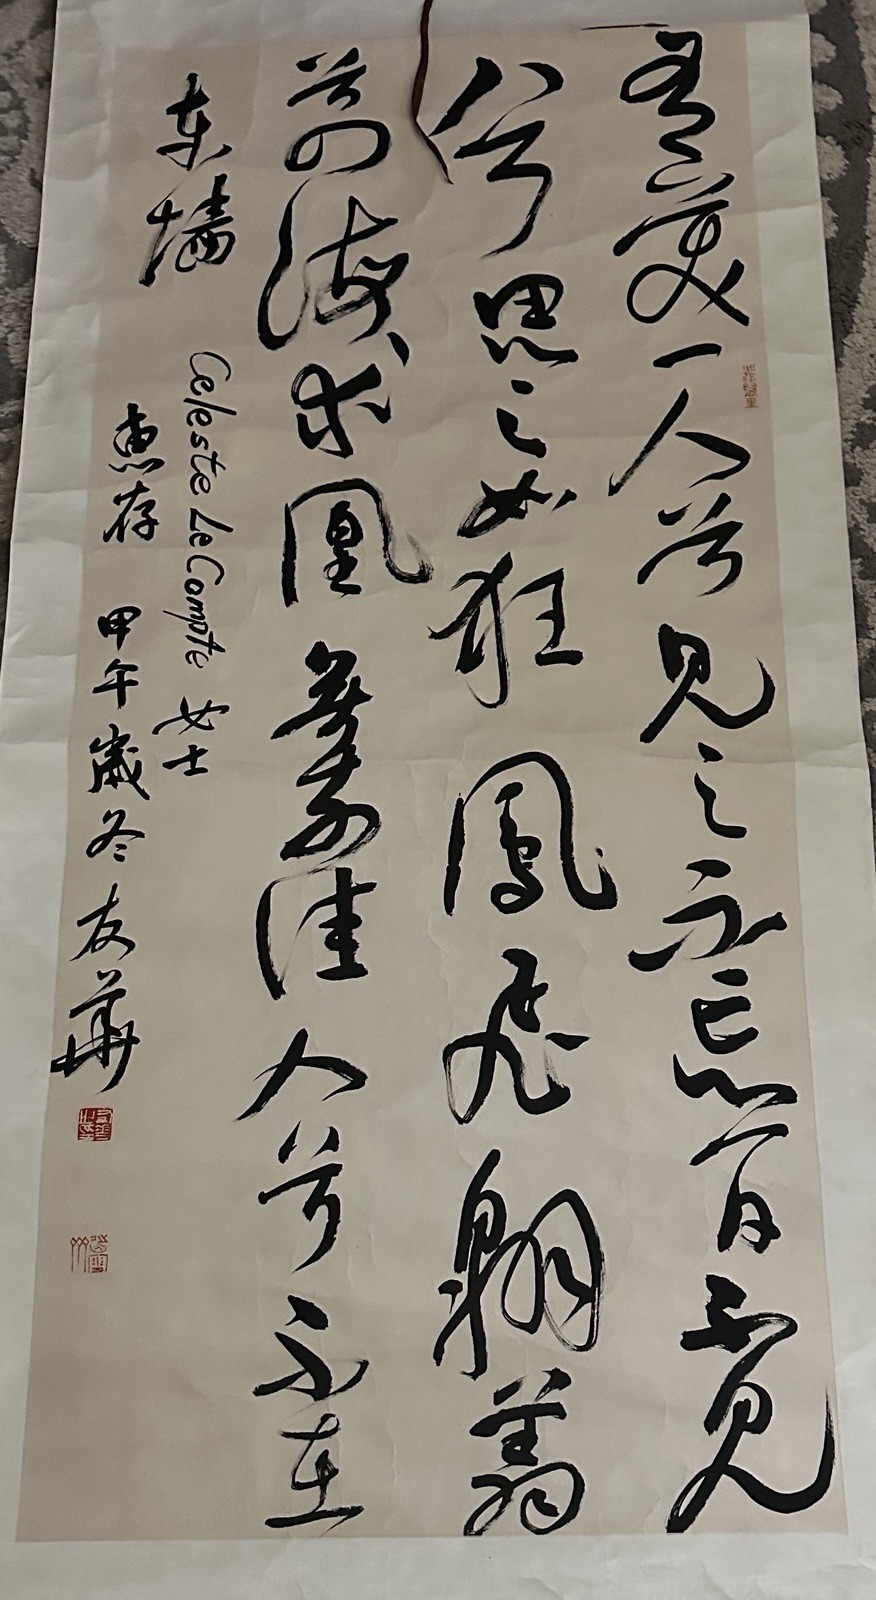 有美一人兮見之不忘一日不見
兮思之如狂鳳飛翱翔
兮四海求凰無奈佳人兮不在
东墙
Celeste LeCompte 女士
惠存 甲午歲冬 友華